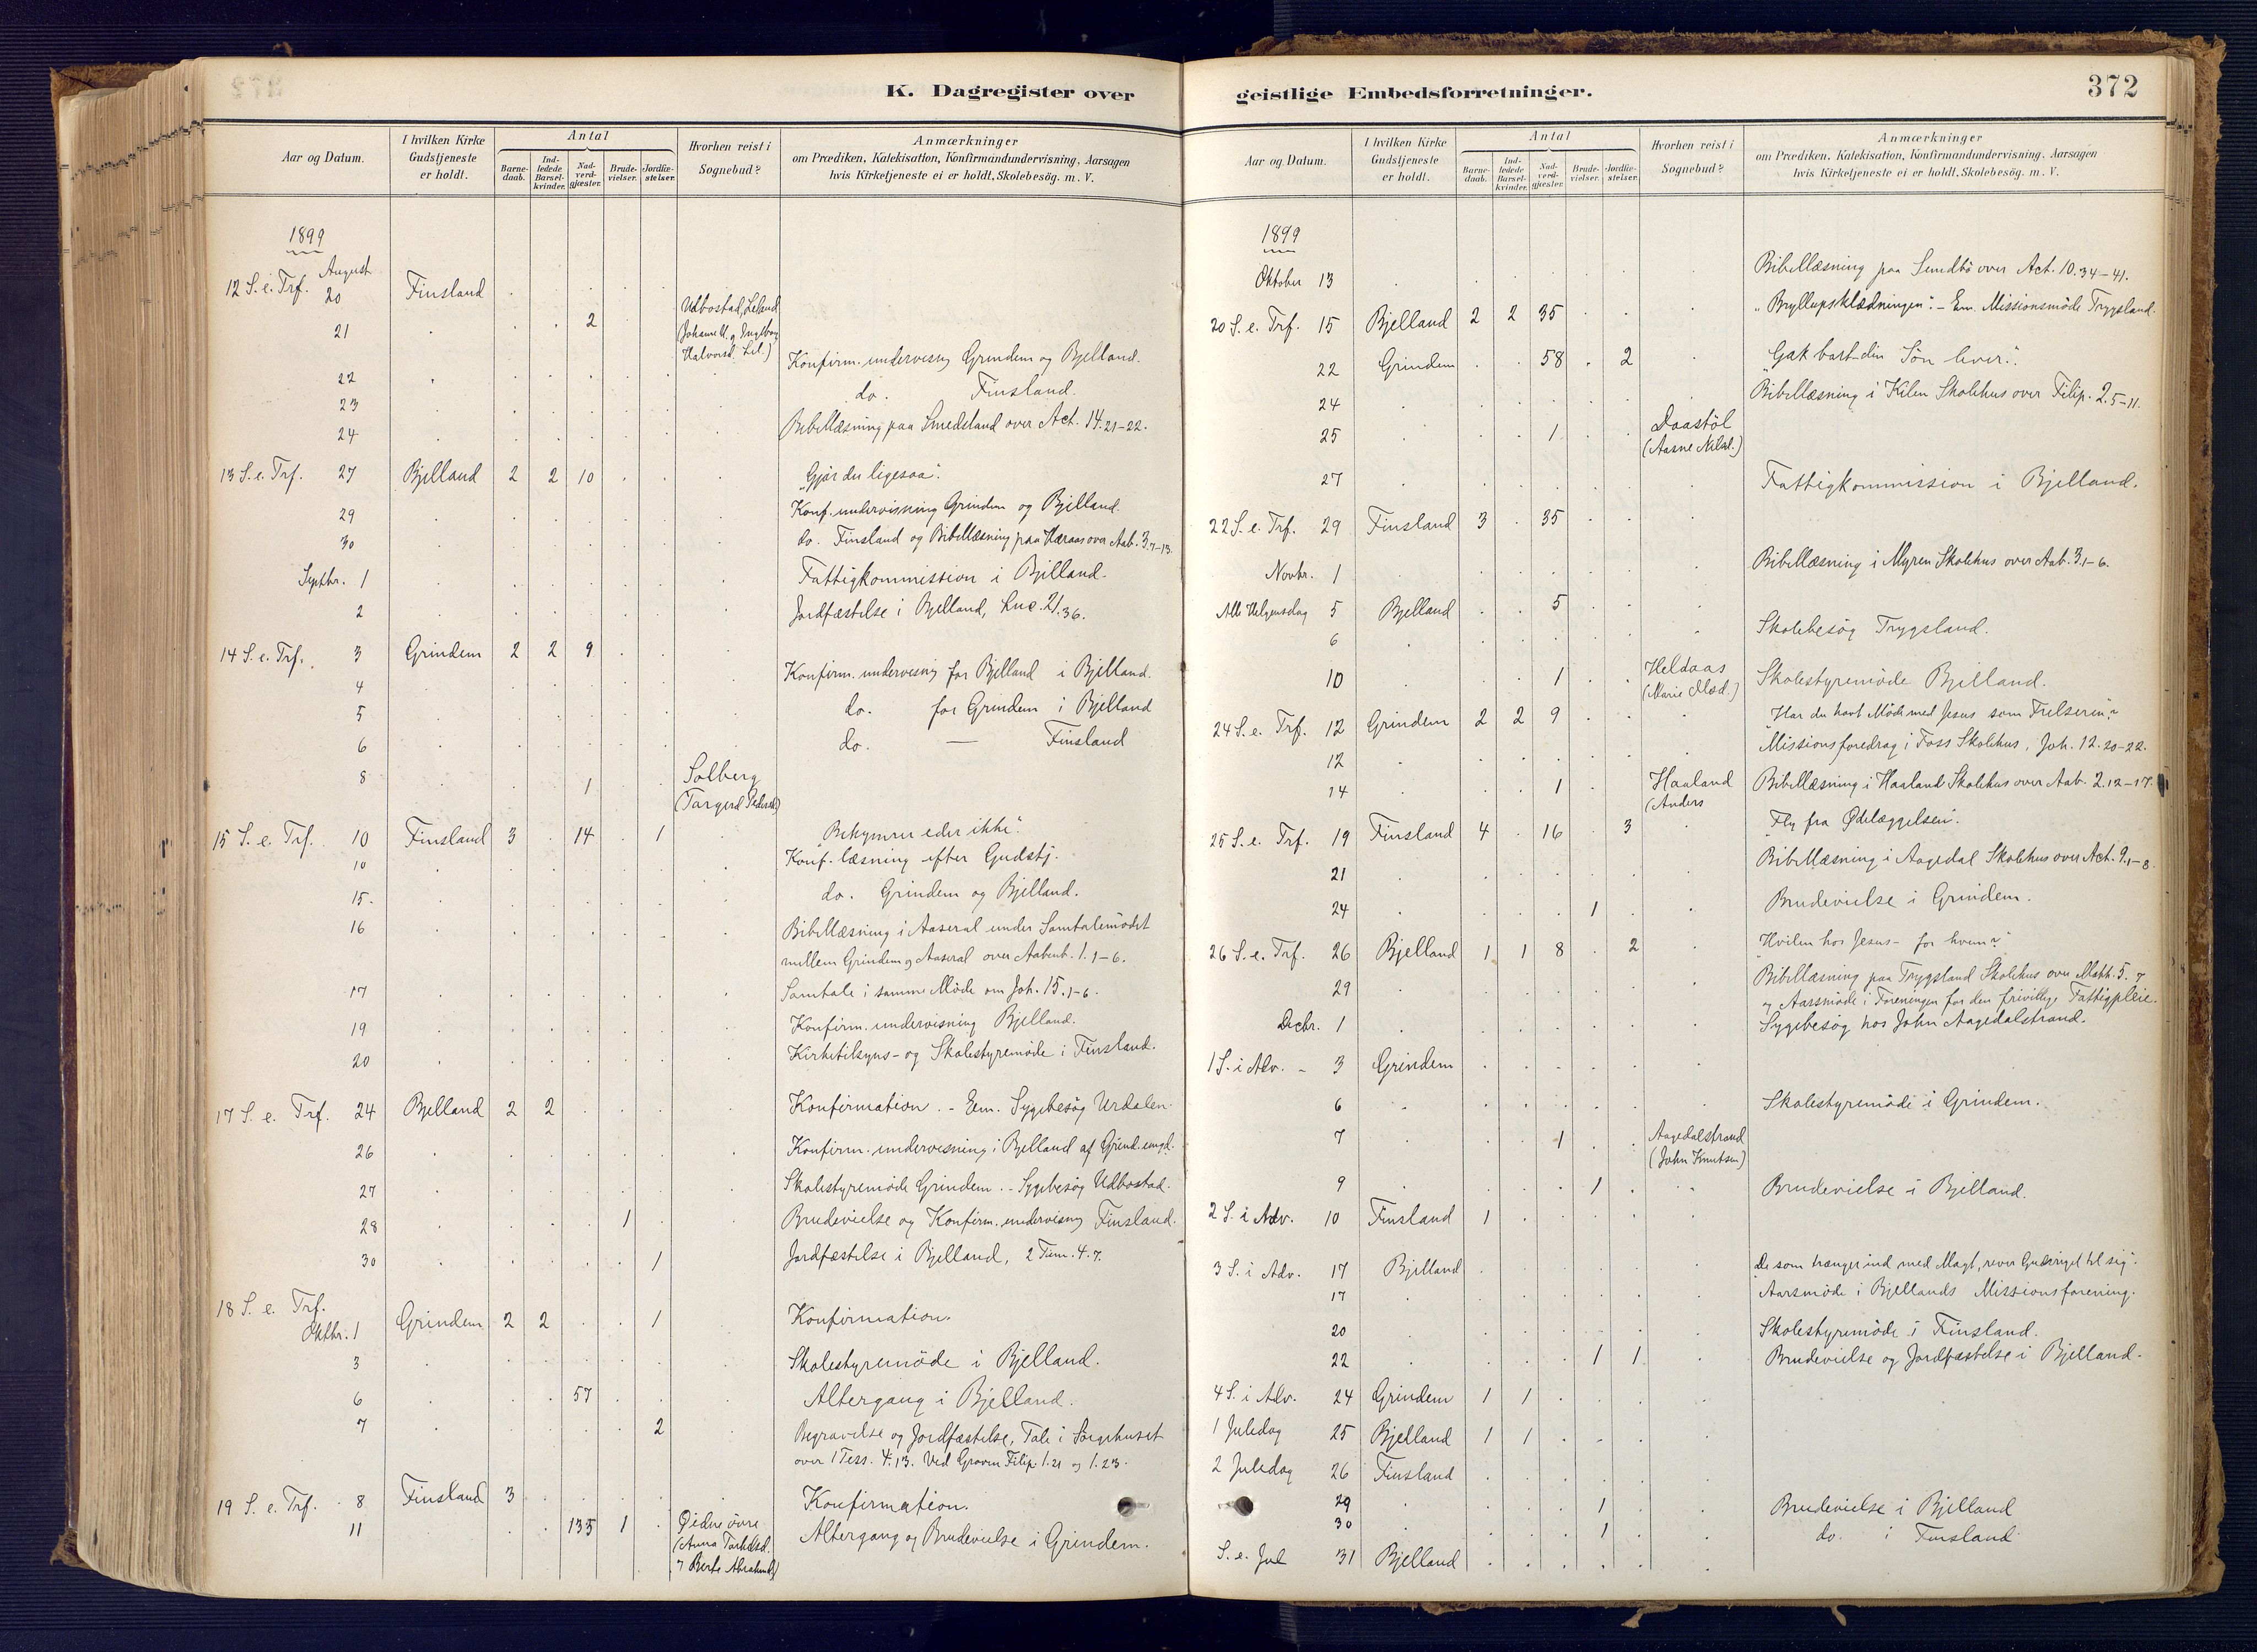 K. Dagregister over
Aar og Datum. | I hvilken Kirke Gudstjeneste er holdt. | Antal | Barnedaab. | Indledede Barselkvinder. | Nadverdgjæster. | Brudevielser. | Jordfæstelser. | Hvorhen reist i Sognebud? | Anmærkninger om Prædiken, Katekisation, Konfirmandundervisning, Aarsagen hvis Kirketjeneste ei er holdt, Skolebesög. m. V.
1899
August
12 S. e. Trf. 20 Finsland
21 2 Udbostad, Leland
(Johanne M. og Ingeborg
Halvorsd. Lel.)
22 Konfirm. undervisng Grindem og Bjelland.
23 do. Finsland.
24 Bibellæsning paa Smedsland over Act. 14.21-22.
13 S. e. Trf. 27 Bjelland 2 2 10 "Gjør du ligesaa".
29 Konf. undervisning Grindem og Bjelland.
30 do. Finsland og Bibellæsning paa Hæraas over Aab. 3.7-13.
Septbr. 1 Fattigkommission i Bjelland.
2 Jordfæstelse i Bjelland, Luc. 21.36.
14 S. e. Trf. 3 Grindem 2 2 9
4 Konfirm. undervisng for Bjelland i Bjelland.
5 do. for Grindem i Bjelland
6 do. — Finsland
8 1 Solberg
(Torgerd Pedersd.)
15 S. e. Trf. 10 Finsland 3 14 1 "Bekymrer eder ikke".
10 Konf. læsning efter Gudstj.
15. do. Grindem og Bjelland.
16 Bibellæsning i Aaseral under Samtalemødet
mellem Grindem og Aaseral over Aabenb. 1.1-6.
17 Samtale i samme Møde om Joh. 15.1-6.
19 Konfirm. undervisning Bjelland.
20 Kirketilsyns- og Skolestyremøde i Finsland.
17 S. e. Trf. 24 Bjelland 2 2 Konfirmation. - Em. Sygebesøg Urdalen.
26 Konfirm. undervisning i Bjelland af Grind. ungd.
27 Skolestyremøde Grindem. - Sygebesøg Udbostad.
28 1 Brudevielse og Konfirm. undervisng Finsland.
30 1 Jordfæstelse i Bjelland, 2 Tim. 4.7.
18 S. e. Trf.
Oktbr. 1 Grindem 2 2 1 Konfirmation.
3 Skolestyremøde i Bjelland.
6 57 Altergang i Bjelland.
7 2 Begravelse og Jordfæstelse, Tale i Sørgehuset
over 1 Tess. 4.13. Ved Graven Filip. 1.21 og 1.23.
19 S. e. Trf. 8 Finsland 3 Konfirmation.
11 135 1 Øidne øvre Altergang og Brudevielse i Grindem.
(Anna Torkelsd.
og Berte Abrahamsd.)
geistlige Embedsforretninger. 372
Aar og Datum. | I hvilken Kirke Gudstjeneste er holdt. | Antal | Barnedaab. | Indledede Barselkvinder. | Nadverdgjæster. | Brudevielser. | Jordfæstelser. | Hvorhen reist i Sognebud? | Anmærkninger om Prædiken, Katekisation, Konfirmandundervisning, Aarsagen hvis Kirketjeneste ei er holdt, Skolebesög. m. V.
1899
Oktober 13 Bibellæsning paa Sundbø over Act. 10.34-41.
20 S. e. Trf. 15 Bjelland 2 2 35 "Bryllupsklædningen". - Em. Missionsmøde Trygsland.
22 Grindem 58 2 "Gak bort din Søn lever".
24 Bibellæsning i Kilen Skolehus over Filip. 2.5-11.
25 1 Daastøl
(Aasne Nilsd.)
27 Fattigkommission i Bjelland.
22 S. e. Trf. 29 Finsland 3 35
Novbr. 1 Bibellæsning i Myren Skolehus over Aab. 3.1-6.
Alle Helgensdag 5 Bjelland 5
6 Skolebesøg Trygsland.
10 1 Heldaas Skolestyremøde Bjelland.
(Marie Mød.)
24 S. e. Trf. 12 Grindem 2 2 9 "Har du havt Møde med Jesus som Frelseren?"
12 Missionsforedrag i Foss Skolehus, Joh. 12.20-22.
14 1 Haaland Bibellæsning i Haaland Skolehus over Aab. 2.12-17.
(Anders
25 S. e. Trf. 19 Finsland 4 16 3 "Fly fra Ødelæggelsen".
21 Bibellæsning i Aagedal Skolehus over Act. 9.1-8.
24 1 Brudevielse i Grindem.
26 S. e. Trf. 26 Bjelland 1 1 8 2 "Hvilen hos Jesus - for hvem?"
29 Bibellæsning paa Trygsland Skolehus over Matth. 5.7
og Aarsmøde i Foreningen for den frivillige Fattigpleie.
Decbr. 1 Sygebesøg hos John Aagedalstrand.
1 S. i Adv. - 3 Grindem
6 Skolestyremøde i Grindem.
7 1 Aagedalstrand
(John Knutsen)
9 1 Brudevielse i Bjelland.
2 S. i Adv. 10 Finsland 1
3 S. i Adv. 17 Bjelland "De som trænger ind med Magt, river Gudsriget til sig".
17 Aarsmøde i Bjellands Missionsforening.
20 Skolestyremøde i Finsland.
22 1 1 Brudevielse og Jordfæstelse i Bjelland.
4 S. i Adv. 24 Grindem 1 1
1 Juledag 25 Bjelland 1 1
2 Juledag 26 Finsland
29 1 Brudevielse i Bjelland
30 1 do. i Finsland
S. e. Jul 31 Bjelland